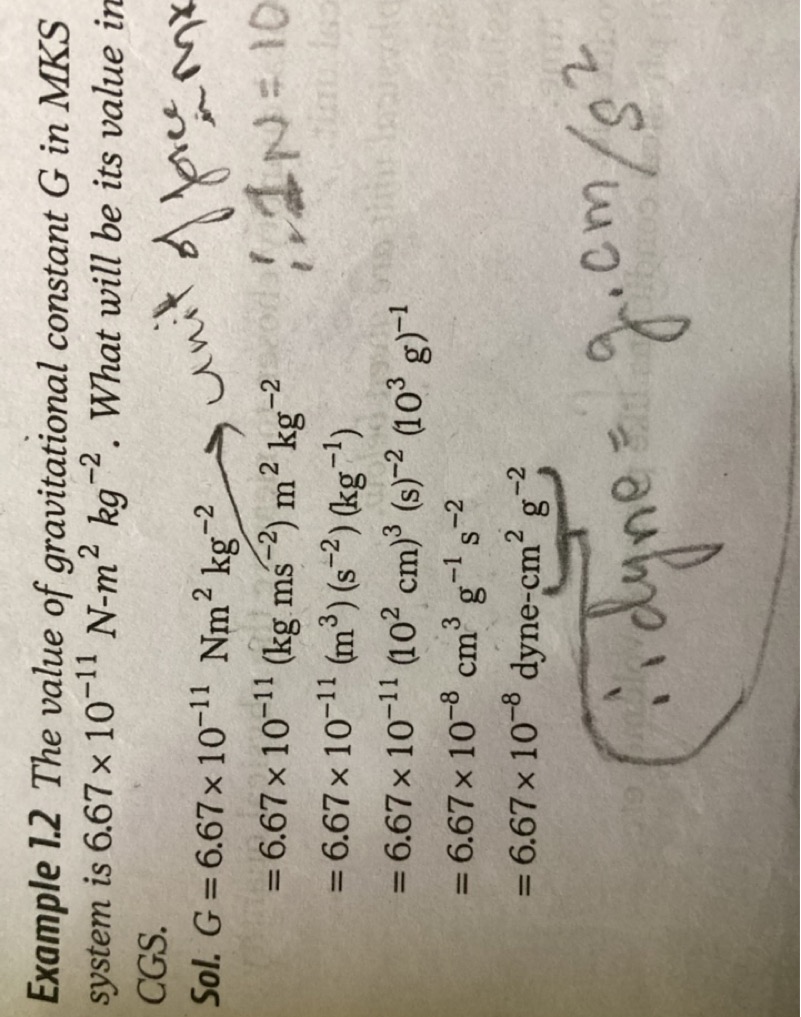 Example 1.2 The value of gravitational constant G in MKS
system is 6.67 × 10⁻¹¹ N-m² kg⁻². What will be its value in
CGS.
Sol. G = 6.67 × 10⁻¹¹ Nm² kg⁻²
unit of force
= 6.67 × 10⁻¹¹ (kg ms⁻²) m² kg⁻²
∵ 1N = 10
= 6.67 × 10⁻¹¹ (m³)(s⁻²)(kg⁻¹)
= 6.67 × 10⁻¹¹ (10² cm)³ (s)⁻² (10³ g)⁻¹
= 6.67 × 10⁻⁸ cm³ g⁻¹ s⁻²
= 6.67 × 10⁻⁸ dyne-cm² g⁻²
∵ dyne = g.cm/s²